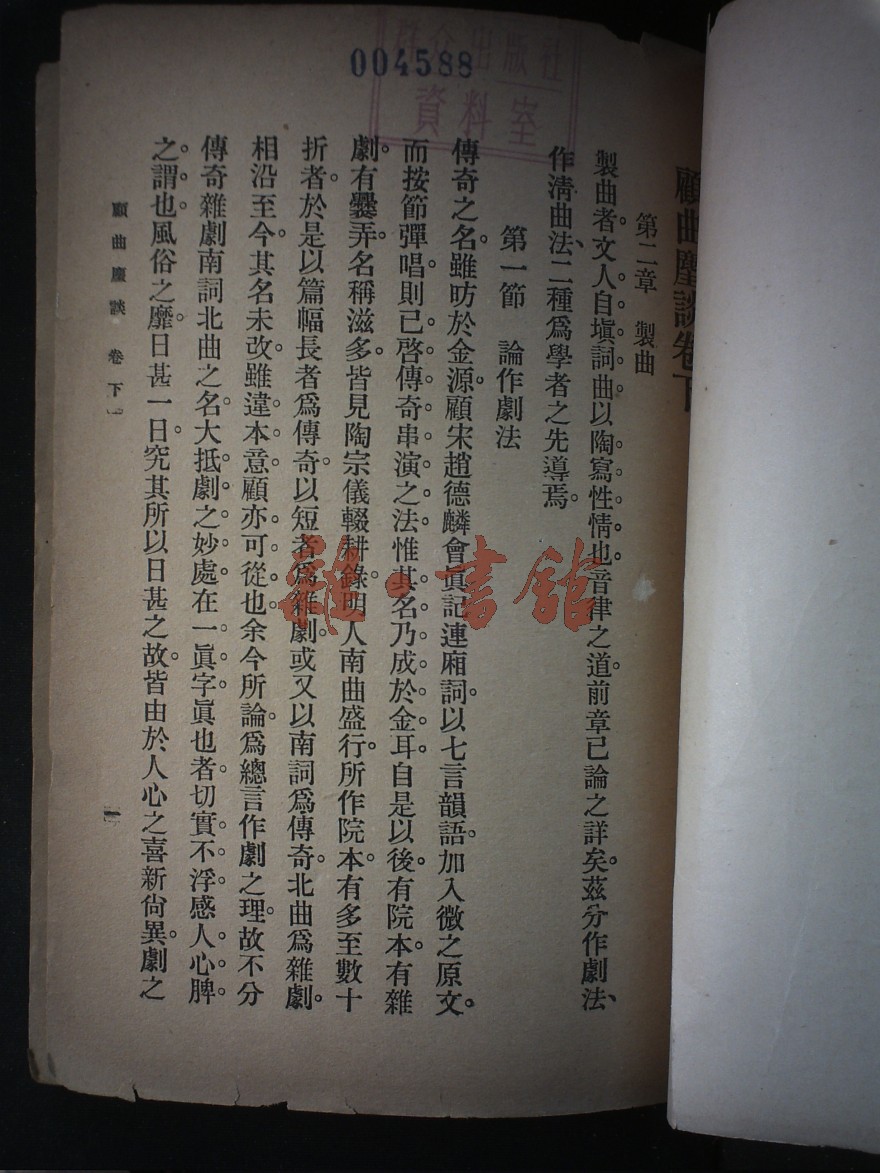 004588
群众出版社
資料室
顧曲麈談卷下
第二章　製曲
製曲者。文人自塡詞曲。以陶寫性情也。音律之道。前章已論之詳矣。茲分作劇法、
作淸曲法、二種。爲學者之先導焉。
第一節　論作劇法
傳奇之名。雖昉於金源。顧宋趙德麟會眞記連廂詞。以七言韻語。加入微之原文。
而按節彈唱。則已啓傳奇串演之法。惟其名乃成於金耳。自是以後。有院本。有雜
劇。有爨弄。名稱滋多。皆見陶宗儀輟耕錄。明人南曲盛行。所作院本。有多至數十
折者。於是以篇幅長者爲傳奇。以短者爲雜劇。或又以南詞爲傳奇。北曲爲雜劇。
相沿至今。其名未改。雖違本意。顧亦可從也。余今所論。爲總言作劇之理。故不分
傳奇雜劇南詞北曲之名。大抵劇之妙處。在一眞字。眞也者。切實不浮。感人心脾
之謂也。風俗之靡。日甚一日。究其所以日甚之故。皆由於人心之喜新尙異。劇之
顧曲麈談　卷下
一
雜·書館